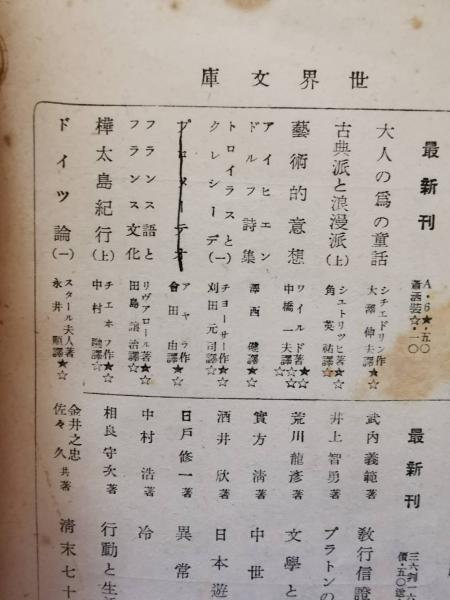 世界文庫
最新刊
A・6★・五〇
蕭洒裝☆・一〇
大人の爲の童話
シチェドリン作★
大澤伸夫譯☆
古典派と浪漫派(上)
シュトリッヒ著★
角英祐譯☆
藝術的意想
ワイルド著★☆
中橋一夫譯☆☆
アイヒェン
ドルフ詩集
澤西健譯★☆
トロイラスと(一)
クレシーデ
チョーサー作★
刈田元司譯☆
プロメーテオ
アヤラ作★
會田由譯☆
フランス語と
フランス文化
リヴアロール著★
田島讓治譯☆
樺太島紀行(上)
チェホフ作★
中村融譯☆
ドイツ論(一)
スタール夫人著★
永井順譯☆
最新刊
武内義範著
敎行信證
井上智勇著
プラトンの
荒川龍彦著
文學と
實方淸著
中世
酒井欣著
日本遊
日戸修一著
異常
中村浩著
冷
相良守次著
行動と生活
金井之忠
佐々久共著
淸末七十